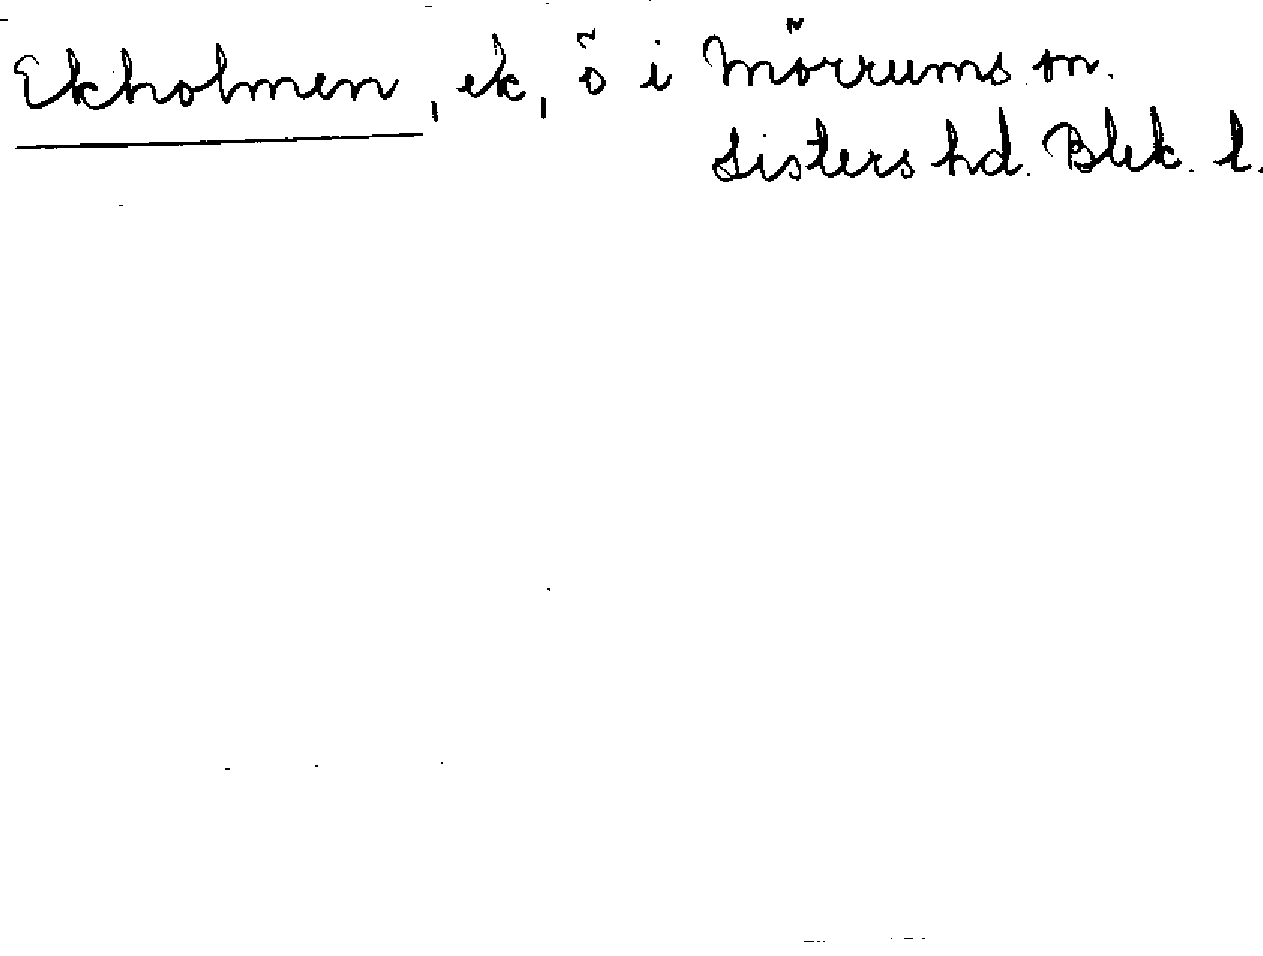 Ekholmen, ek, ö i Mörrums sn.
Listers hd. Blek. l.